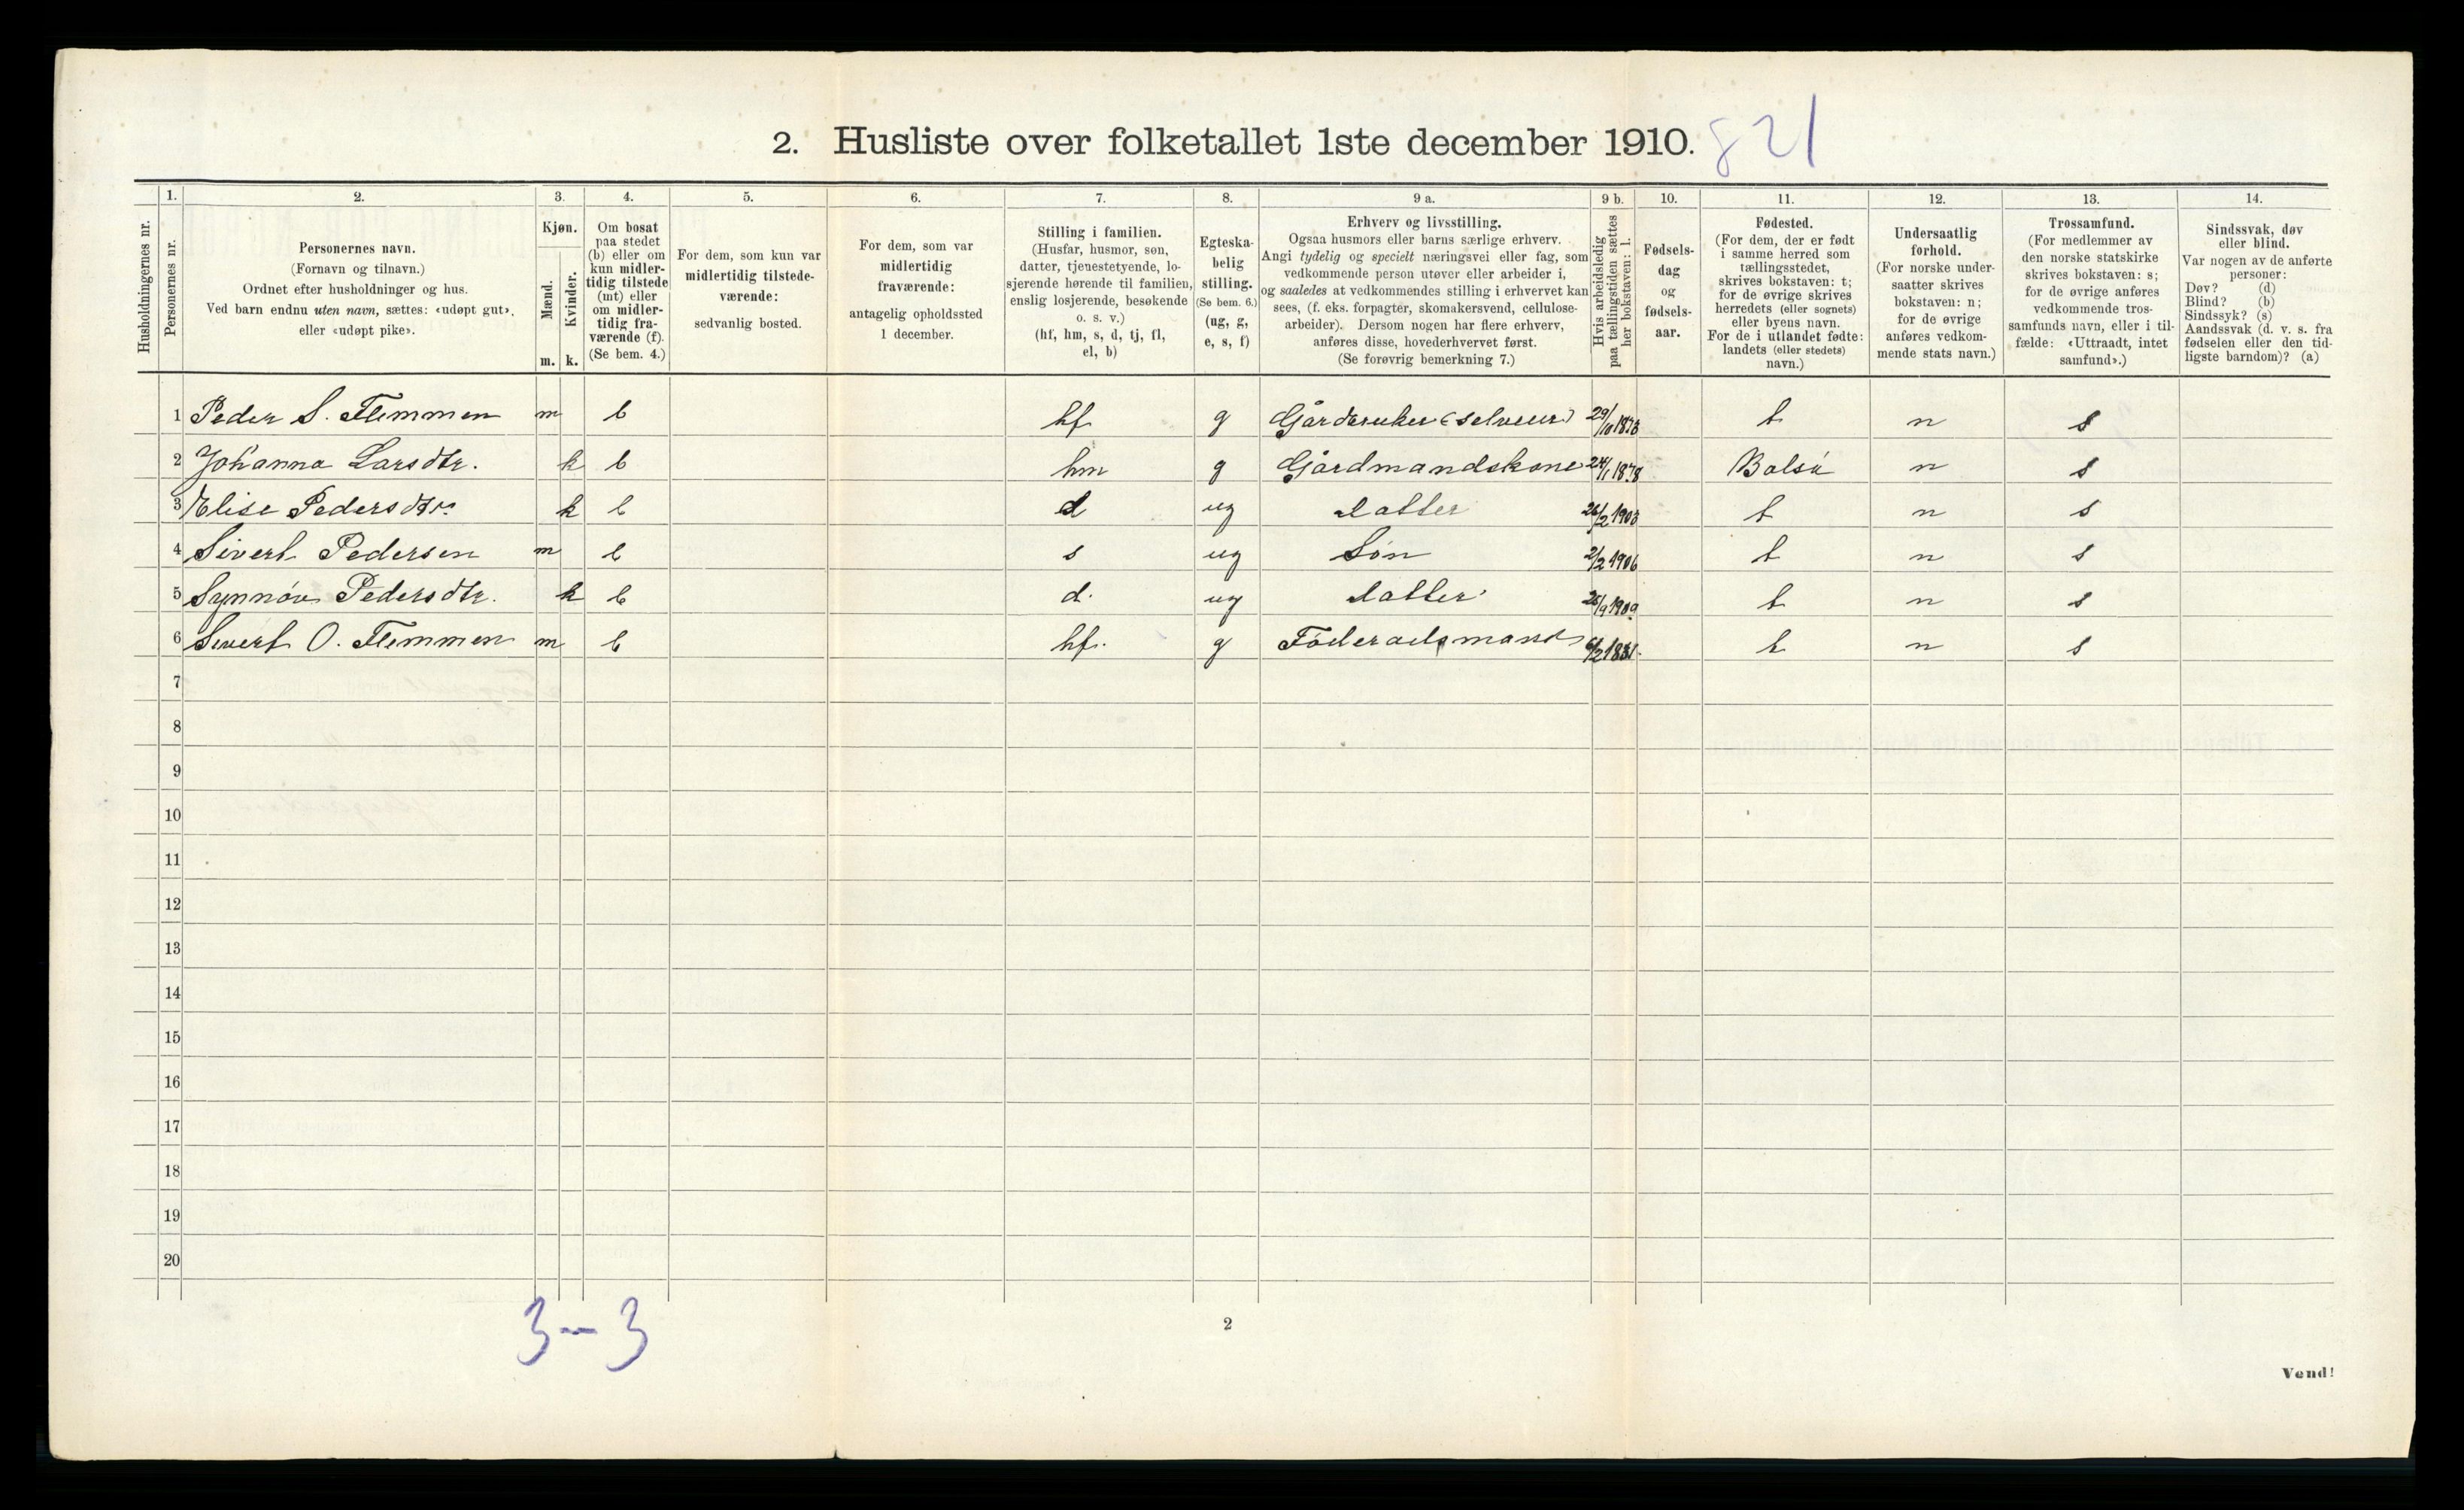 2. Husliste over folketallet 1ste december 1910. 821
Husholdningernes nr.
1. Personernes nr.
2. Personernes navn.
(Fornavn og tilnavn.)
Ordnet efter husholdninger og hus.
Ved barn endnu uten navn, sættes: «udøpt gut»,
eller «udøpt pike».
3. Kjøn.
Mænd. m.
Kvinder. k.
4. Om bosat
paa stedet
(b) eller om
kun midler-
tidig tilstede
(mt) eller
om midler-
tidig fra-
værende (f).
(Se bem. 4.)
5. For dem, som kun var
midlertidig tilstede-
værende:
sedvanlig bosted.
6. For dem, som var
midlertidig
fraværende:
antagelig opholdssted
1 december.
7. Stilling i familien.
(Husfar, husmor, søn,
datter, tjenestetyende, lo-
sjerende hørende til familien,
enslig losjerende, besøkende
o. s. v.)
(hf, hm, s, d, tj, fl,
el, b)
8. Egteska-
belig
stilling.
(Se bem. 6.)
(ug, g,
e, s, f)
9 a. Erhverv og livsstilling.
Ogsaa husmors eller barns særlige erhverv.
Angi tydelig og specielt næringsvei eller fag, som
vedkommende person utøver eller arbeider i,
og saaledes at vedkommendes stilling i erhvervet kan
sees, (f. eks. forpagter, skomakersvend, cellulose-
arbeider). Dersom nogen har flere erhverv,
anføres disse, hovederhvervet først.
(Se forøvrig bemerkning 7.)
9 b. Hvis arbeidsledig
paa tællingstiden sættes
her bokstaven: l.
10. Fødsels-
dag
og
fødsels-
aar.
11. Fødested.
(For dem, der er født
i samme herred som
tællingsstedet,
skrives bokstaven: t;
for de øvrige skrives
herredets (eller sognets)
eller byens navn.
For de i utlandet fødte:
landets (eller stedets)
navn.)
12. Undersaatlig
forhold.
(For norske under-
saatter skrives
bokstaven: n;
for de øvrige
anføres vedkom-
mende stats navn.)
13. Trossamfund.
(For medlemmer av
den norske statskirke
skrives bokstaven: s;
for de øvrige anføres
vedkommende tros-
samfunds navn, eller i til-
fælde: «Uttraadt, intet
samfund».)
14. Sindssvak, døv
eller blind.
Var nogen av de anførte
personer:
Døv? (d)
Blind? (b)
Sindssyk? (s)
Aandssvak (d. v. s. fra
fødselen eller den tid-
ligste barndom)? (a)
1 Peder S. Flemmen m b hf g t n s
2 Johanna Larsdtr. k b hm g Gårdmandskone 24/1 1878 Bolsø n s
3 Elise Pedersdtr. k b d ug datter 26/2 1903 t n s
4 Sivert Pedersen m b s ug Søn 2/2 1906 t n s
5 Synnøv Pedersdtr. k b d. ug datter 25/9 1909 t n s
6 Sivert O. Flemmen m b hf. g Føderaadsmand t n s
7
8
9
10
11
12
13
14
15
16
17
18
19
20
3 — 3
2
Vend!